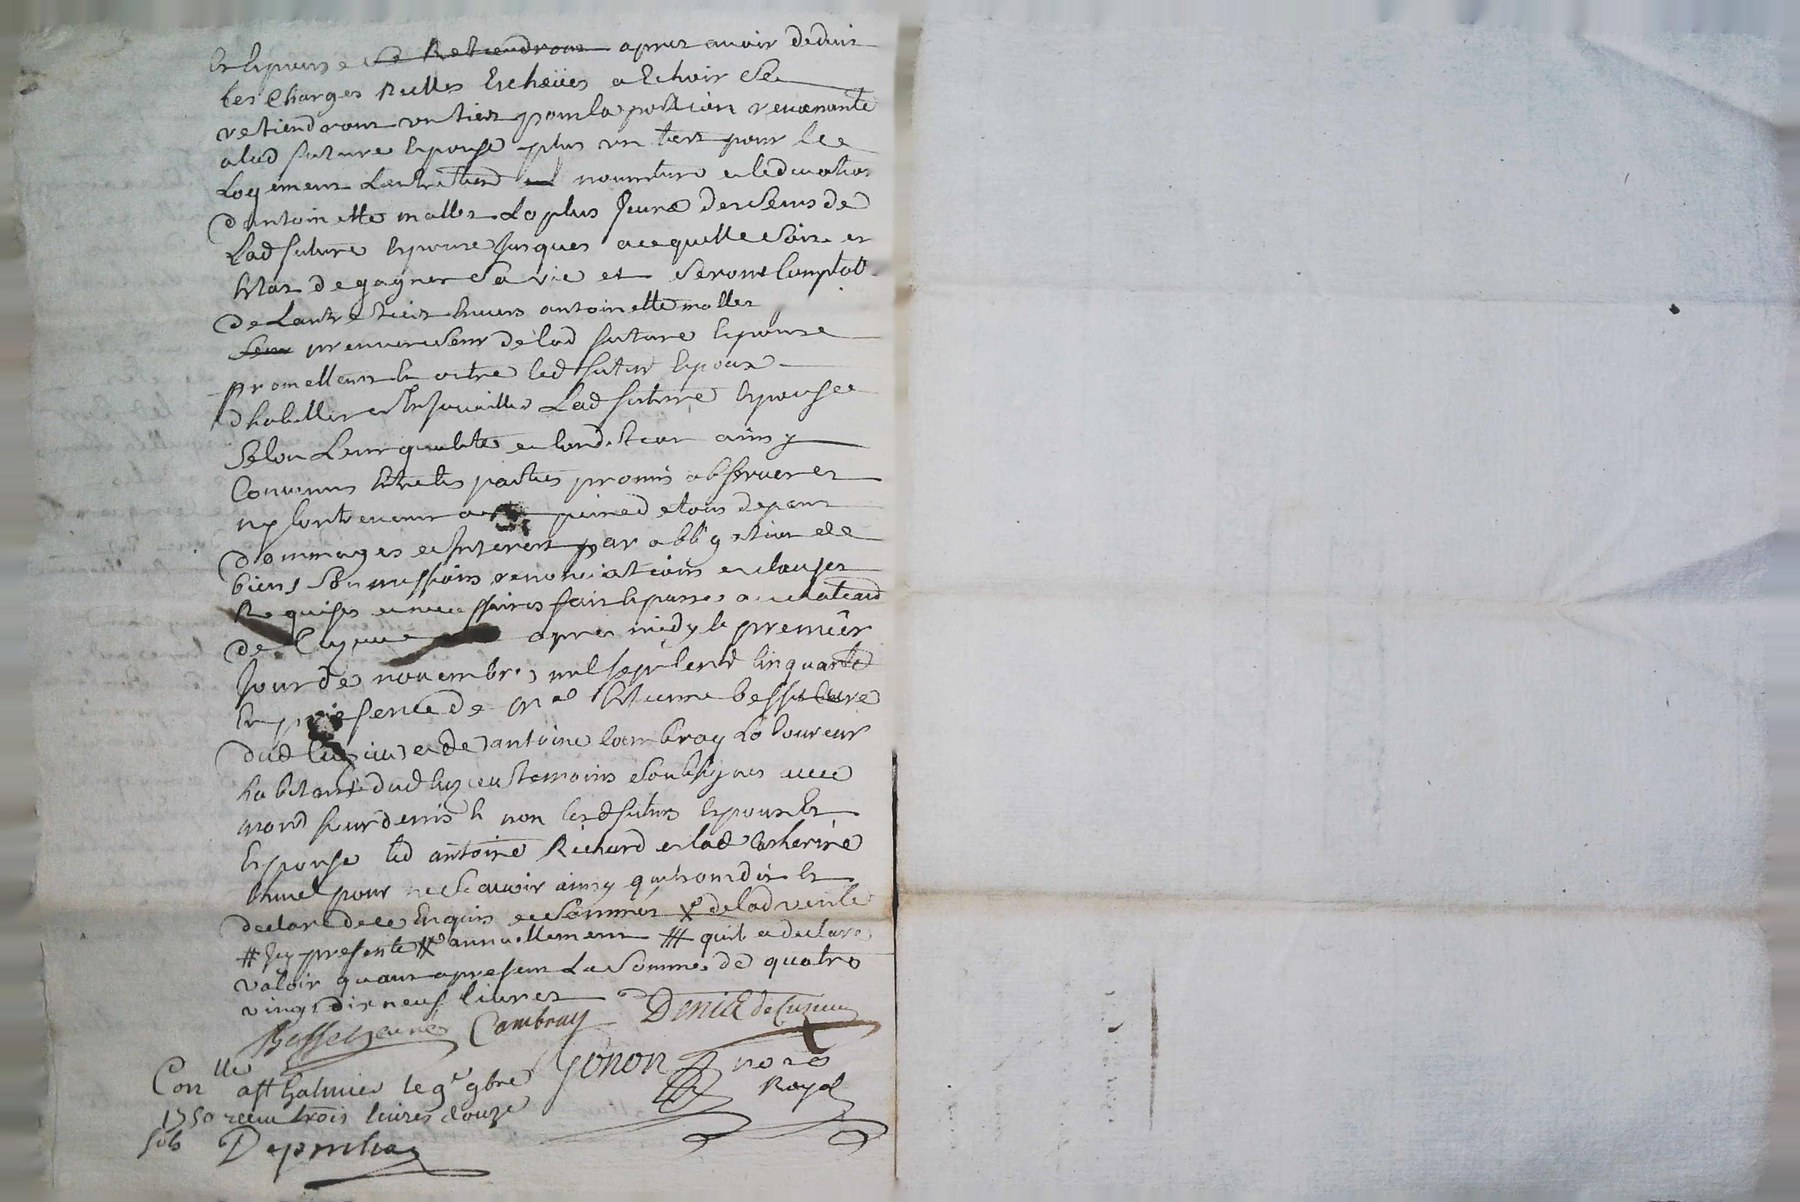 Et Epouse se Retiendront apres avoir deduit
les Charges Rielles Echeües a Echoir Se
retiendront un tiers pour la portion revenante
a lad future Epouse plus un tiers pour lee
Logement Lentretien nourriture e leducation
dantoinette mallet La plus Jeune des Seurs de
Lad future Epouse Jusques a ce quelle soit en
Etat de gagner Sa vie et seront
de Lautre tiers Envers antoinette mallet
premiere Seur de lad future Epouse
promettent En outre led futur Epoux
dhabiller et Enjouailler Lad future Epousee
Selon Leur qualité e Condition ainsy
Convenu Entre les parties promis observer et
ny Contrevenir a peine de tous depens
dommages e Interest par obligation de
biens Soumissions renonciations e clauses
Requises e necessaires fait e passé au chateaud
de Cuzieu apres midy le premier
Jour de novembre mil sept Cent Cinquante
En presence de Etienne
dud Cuzieu e de antoine Cambray Laboureur
habitant dud Cuzieu temoins Soubsignes avec
mond sieur denis E non lesd futurs Epoux Et
Epouse led antoine Richard e lad Catherine
pour ne Scavoir ainsy quils ont dit Et
declaré de ce Enquis e Sommés de lad ville
# Icy presente annuellement # quil a declaré
valoir quant apresent La Somme de quatre
vingt dix neuf livres
Cambray Denis de Cuzieu
Gonon nore
Royal
Con lle a St Galmier le 9e 9bre
1750 receu trois livres douze
sols